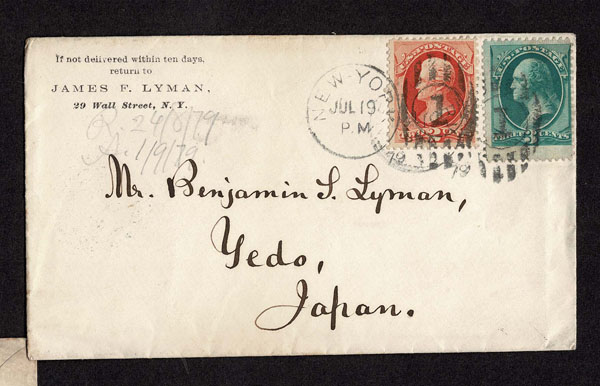 If not delivered within ten days,
return to
JAMES F. LYMAN,
29 Wall Street, N. Y.
24/8/79
1/9/79.
NEW-YORK
JUL 19
P.M.
79
1
U.S. POSTAGE
2
THREE CENTS
Mr. Benjamin S. Lyman,
Yedo,
Japan.